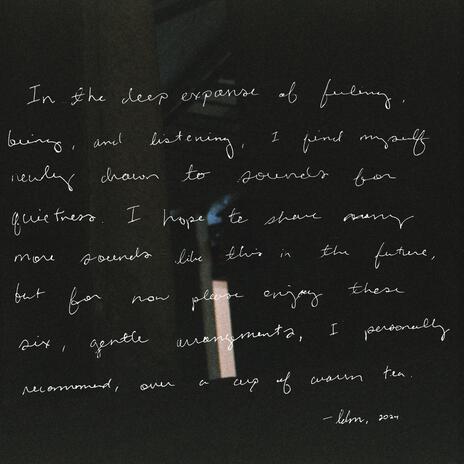 In the deep expanse of feeling,
being, and listening, I find myself
newly drawn to sounds for
quietness. I hope to share many
more sounds like this in the future,
but for now please enjoy these
six, gentle arrangements, I personally
recommend, over a cup of warm tea.
—ldm, 2024